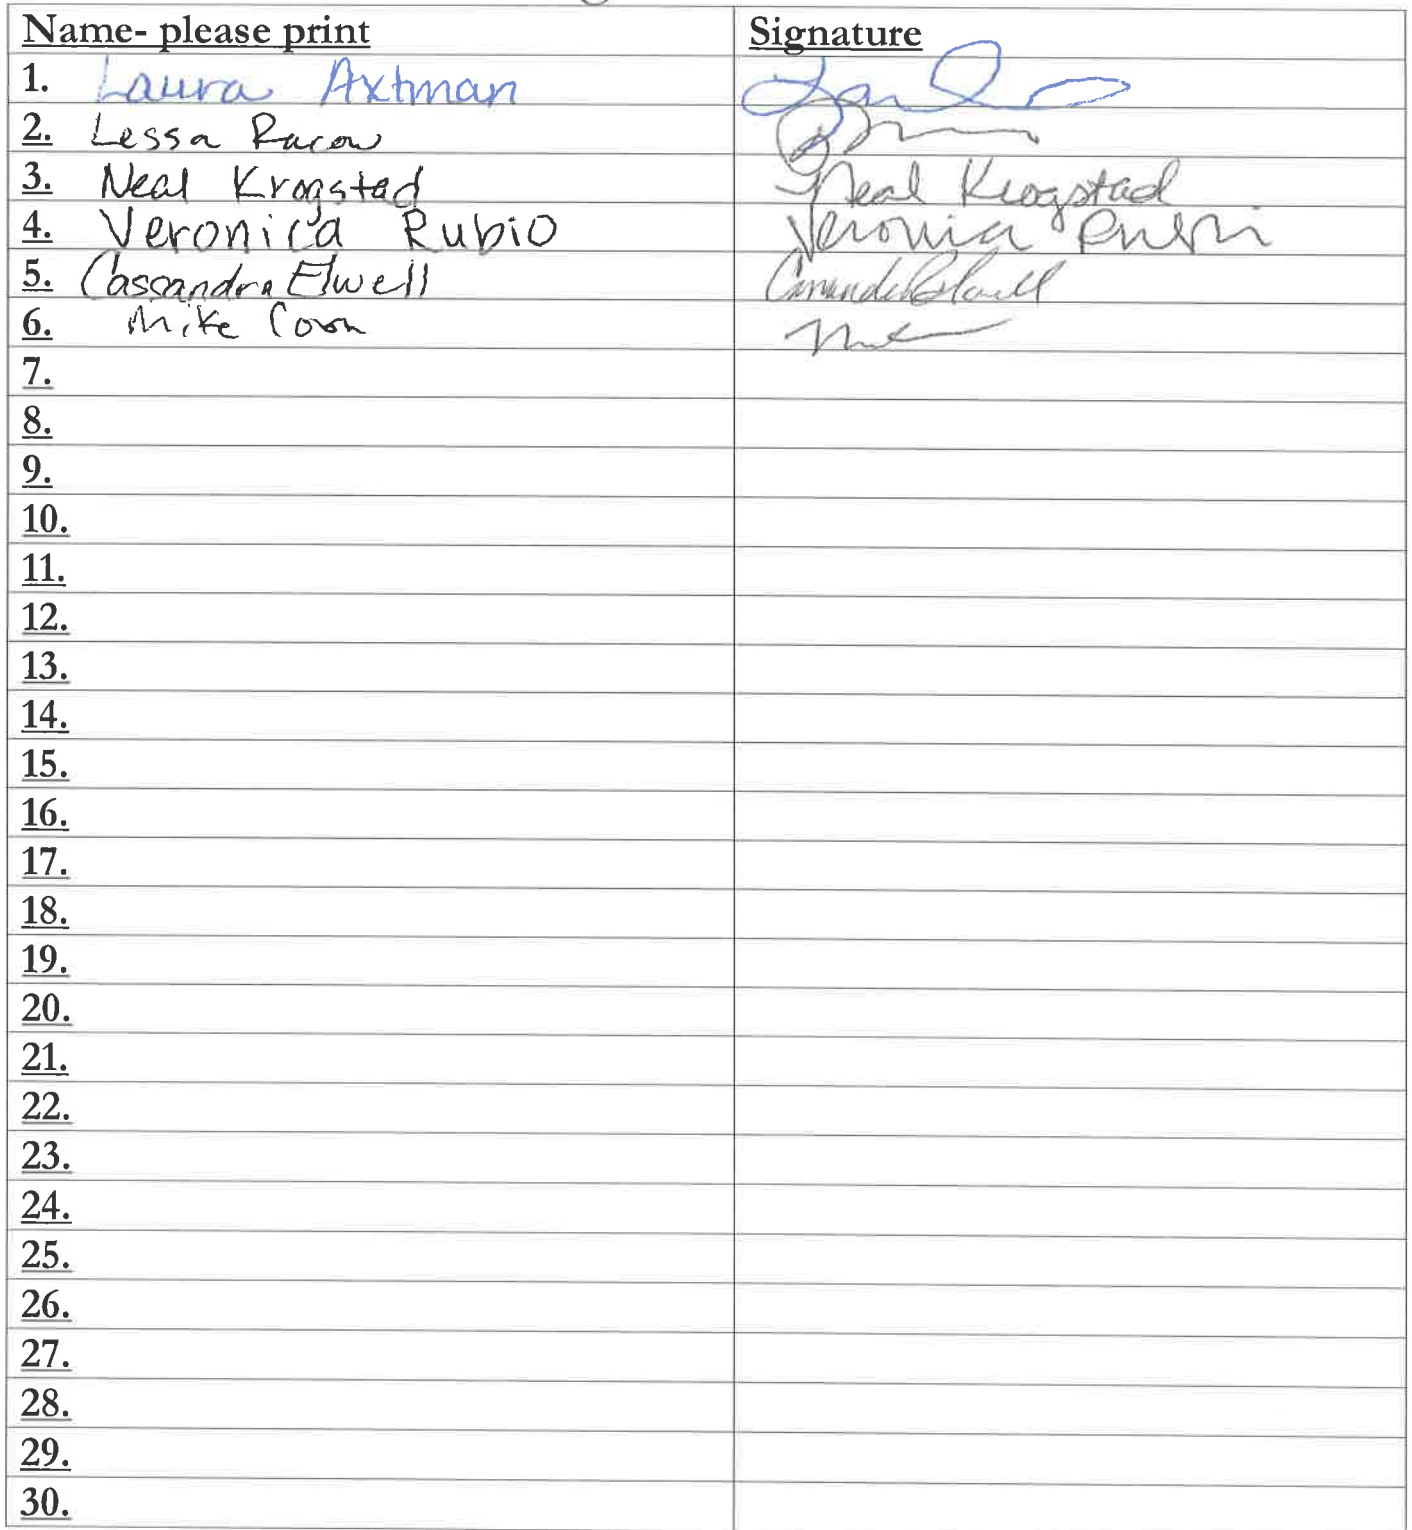 Name- please print Signature
1. Laura Axtman
2. Lessa Racow
3. Neal Krogstad Neal Krogstad
4. Veronica Rubio Veronica Rubio
5. Cassandra Elwell Cassandra Elwell
6. Mike
7.
8.
9.
10.
11.
12.
13.
14.
15.
16.
17.
18.
19.
20.
21.
22.
23.
24.
25.
26.
27.
28.
29.
30.